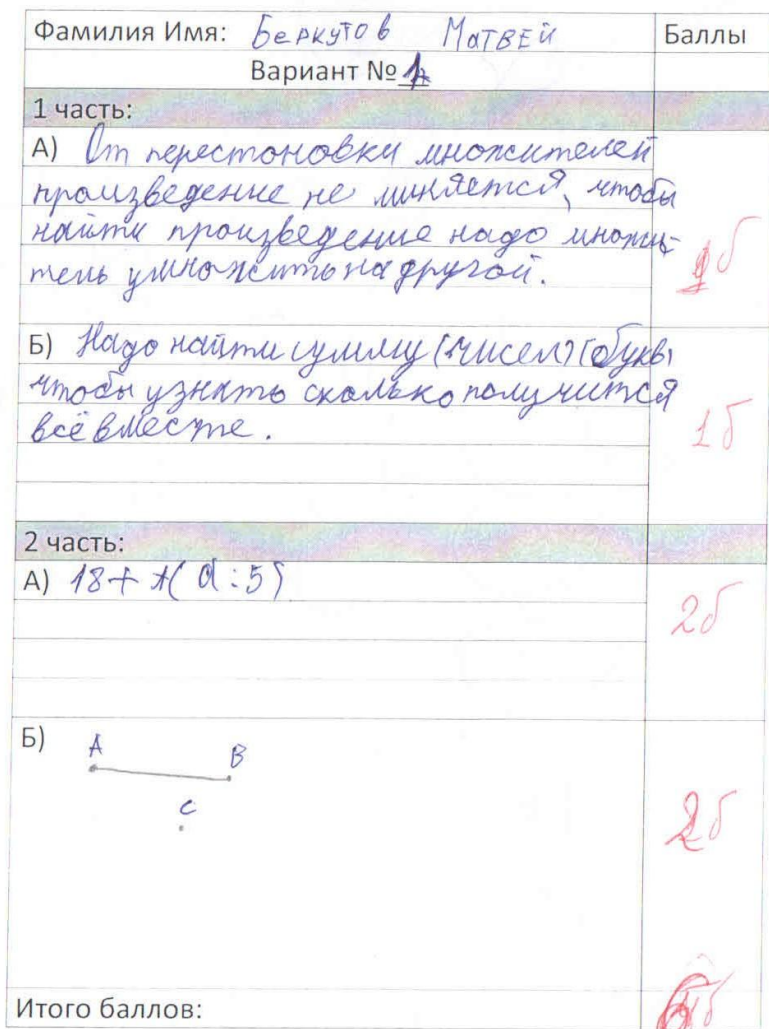 Фамилия Имя: Беркутов Матвей Баллы
Вариант № 1
1 часть:
А) От перестоновки множителей
произведение не миняется, чтобы
найти произведение надо множи-
тель умножить на другой. 1б
Б) Надо найти сумму (чисел) (букв)
чтобы узнать сколько получится
всё вместе. 1б
2 часть:
А) 18 + (а : 5) 2б
Б) А В
С
2б
Итого баллов: